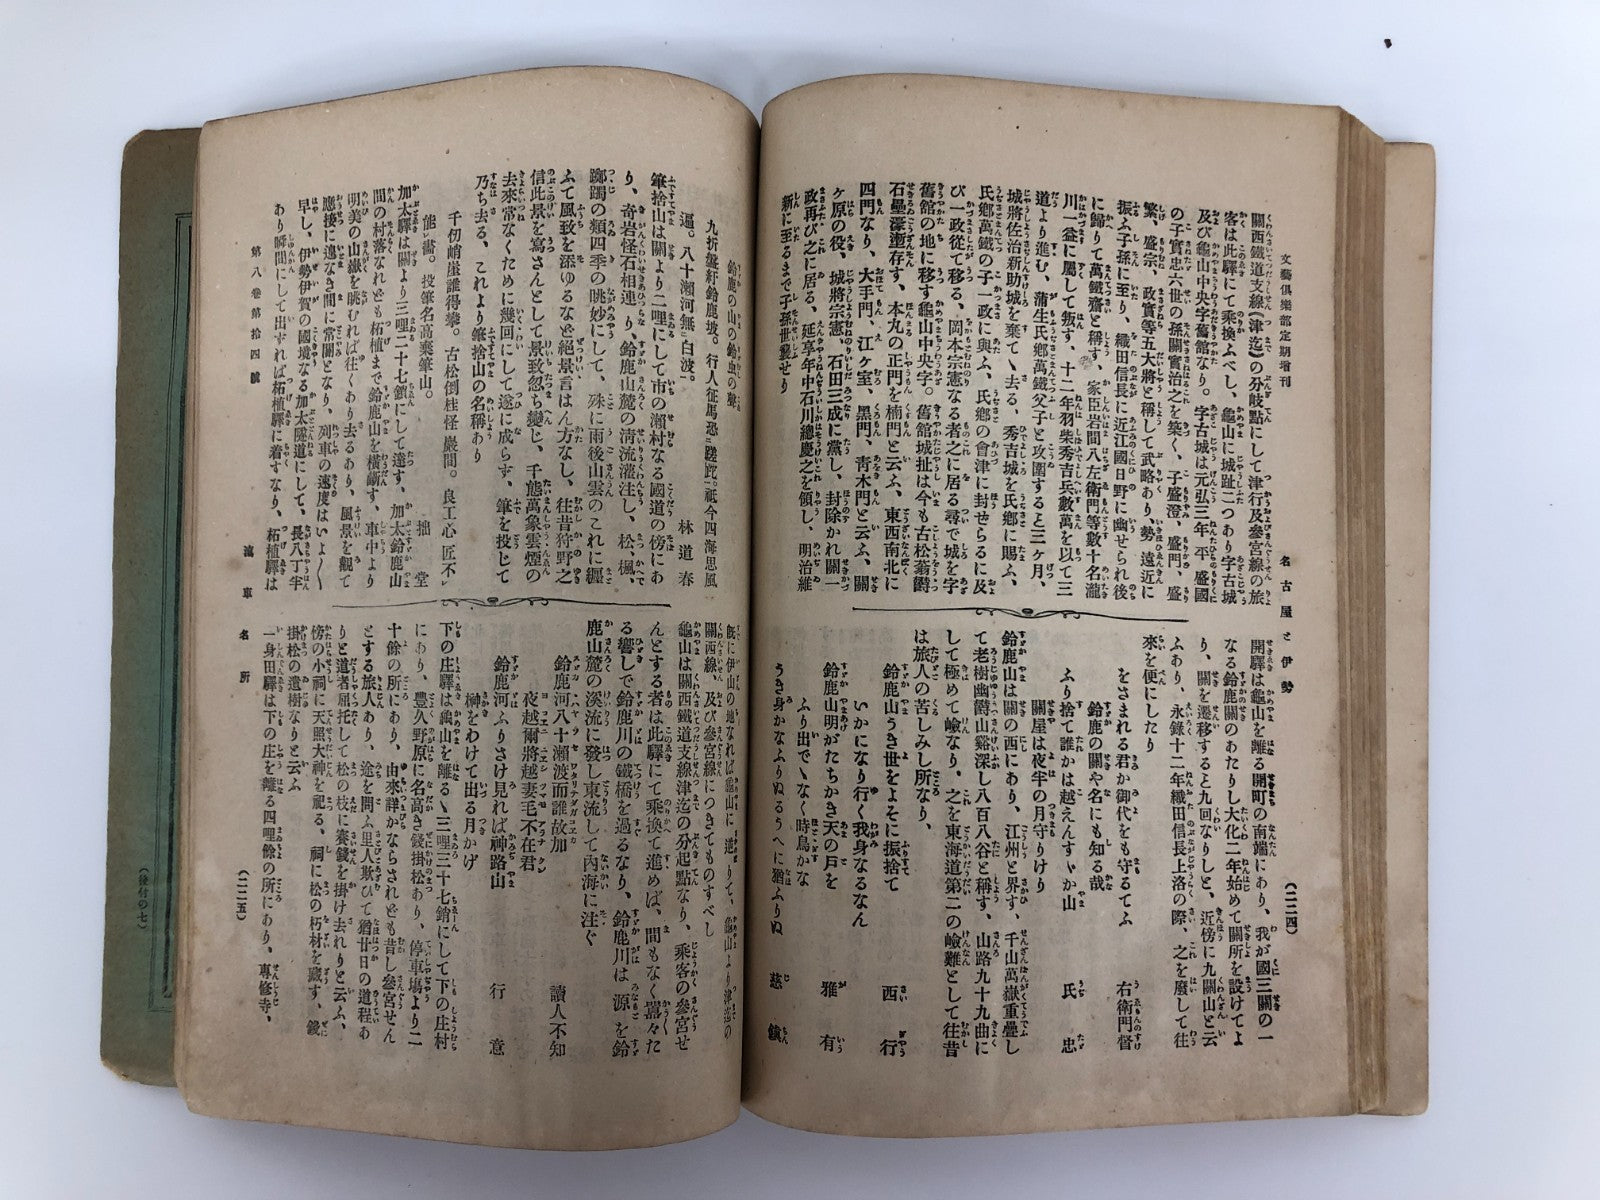 文藝倶樂部定期增刊
名古屋と伊勢
(二二四)
關西鐵道支線(津迄)の分岐點にして津行及參宮線の旅
客は此驛にて乘換ふべし、龜山に城趾二つあり字古城
及び龜山中央字舊館なり。字古城は元弘三年平盛國
の子實忠六世の孫關實治之を築く、子盛澄、盛門、盛
繁、盛宗、政實等五大將と稱して武略あり、勢、遠近に
振ふ子孫に至り、織田信長に近江國日野に幽せられ後
に歸りて萬鐵齋と稱す、家臣岩間八左衛門等數十名瀧
川一益に屬して叛す、十二年羽柴秀吉兵數萬を以て三
道より進む、蒲生氏鄕萬鐵父子と攻圍すると三ヶ月、
城將佐治新助城を棄てゝ去る、秀吉城を氏鄕に賜ふ、
氏鄕萬鐵の子一政に與ふ、氏鄕の會津に封せらるに及
び一政從て移る、岡本宗憲なる者之に居る尋で城を字
舊館の地に移す龜山中央字。舊館城趾は今も古松蓊欝
石壘濠塹存す、本丸の正門を楠門と云ふ、東西南北に
四門なり、大手門、江ヶ室、黑門、靑木門と云ふ、關
ヶ原の役、城將宗憲、石田三成に黨し、封除かれ關一
政再び之に居る、延享年中石川總慶之を領し、明治維
新に至るまで子孫世襲せり
開驛は龜山を離る開町の南端にあり、我が國三關の一
なる鈴鹿關のあたりし大化二年始めて關所を設けてよ
り、關を遷移すると九回なりしと、近傍に九關山と云
ふあり、永錄十二年織田信長上洛の際、之を廢して往
來を便にしたり
をさまれる君か御代をも守るてふ　右衛門督
鈴鹿の關や名にも知る哉
ふり捨て誰かは越えんすゞか山　氏忠
關屋は夜半の月守りけり
鈴鹿山は關の西にあり、江州と界す、千山萬嶽重疊し
て老樹幽欝山谿深し八百八谷と稱す、山路九十九曲に
して極めて嶮なり、之を東海道第二の嶮難として往昔
は旅人の苦しみし所なり、
鈴鹿山うき世をよそに振捨て　西行
いかになり行く我身なるなん
鈴鹿山明がたちかき天の戶を　雅有
ふり出でゝなく時鳥かな
うき身かなふりぬるうへに猶ふりぬ　慈鎭
鈴鹿の山の鈴虫の聲
九折盤紆鈴鹿坡。行人征馬恐蹉跎。祇今四海思風　林道春
遍。八十瀨河無白波。
筆捨山は關より二哩にして市の瀨村なる國道の傍にあ
り、奇岩怪石相連り、鈴鹿山麓の淸流灌注し、松、楓、
躑躅の類四季の眺妙にして、殊に雨後山雲のこれに纒
ふて風致を添ゆるなど絕景言はん方なし、往昔狩野之
信此景を寫さんとして景致忽ち變じ、千態萬象雲煙の
去來常なくために幾回にして遂に成らず、筆を投じて
乃ち去る、これより筆捨山の名稱あり
千仞峭崖誰得攀。古松倒桂怪巖間。良工心匠不　拙堂
能畵。投筆名高棄筆山。
加太驛は關より三哩二十七鎖にして達す、加太鈴鹿山
間の村落なれども柘植まで鈴鹿山を橫斷す、車中より
明美の山嶽を眺むれば往くあり去るあり、風景を觀て
應接に遑なき間に常闇となり、列車の速度はいよ〱
早し、伊勢伊賀の國境なる加太隧道にして、長八丁半
あり瞬間にして出ずれば柘植驛に着すなり、柘植驛は
旣に伊山の地なれば龜山に還りて、龜山より津迄の
關西線、及び參宮線につきてものすべし
龜山は關西鐵道支線津迄の分起點なり、乘客の參宮せ
んとする者は此驛にて乘換て進めば、間もなく囂々た
る響して鈴鹿川の鐵橋を過るなり、鈴鹿川は源を鈴
鹿山麓の溪流に發し東流して內海に注ぐ
鈴鹿河八十瀨渡而誰故加　讀人不知
夜越爾將越妻毛不在君
鈴鹿河ふりさけ見れば神路山　行意
榊をわけて出る月かげ
下の庄驛は龜山を離るゝ三哩三十七鎖にして下の庄村
にあり、豐久野原に名高き錢掛松あり、停車塲より二
十餘の所にあり、由來詳かならされども昔し參宮せん
とする旅人あり、途を問ふ里人欺ひて猶廿日の道程あ
りと道者屈托して松の枝に賽錢を掛け去れりと云ふ、
傍の小祠に天照大神を祀る、祠に松の朽材を藏す、錢
掛松の遺樹なりと云ふ
一身田驛は下の庄を離る四哩餘の所にあり、專修寺、
第八卷第拾四號
滊車名所
(二二五)
(後付の七)